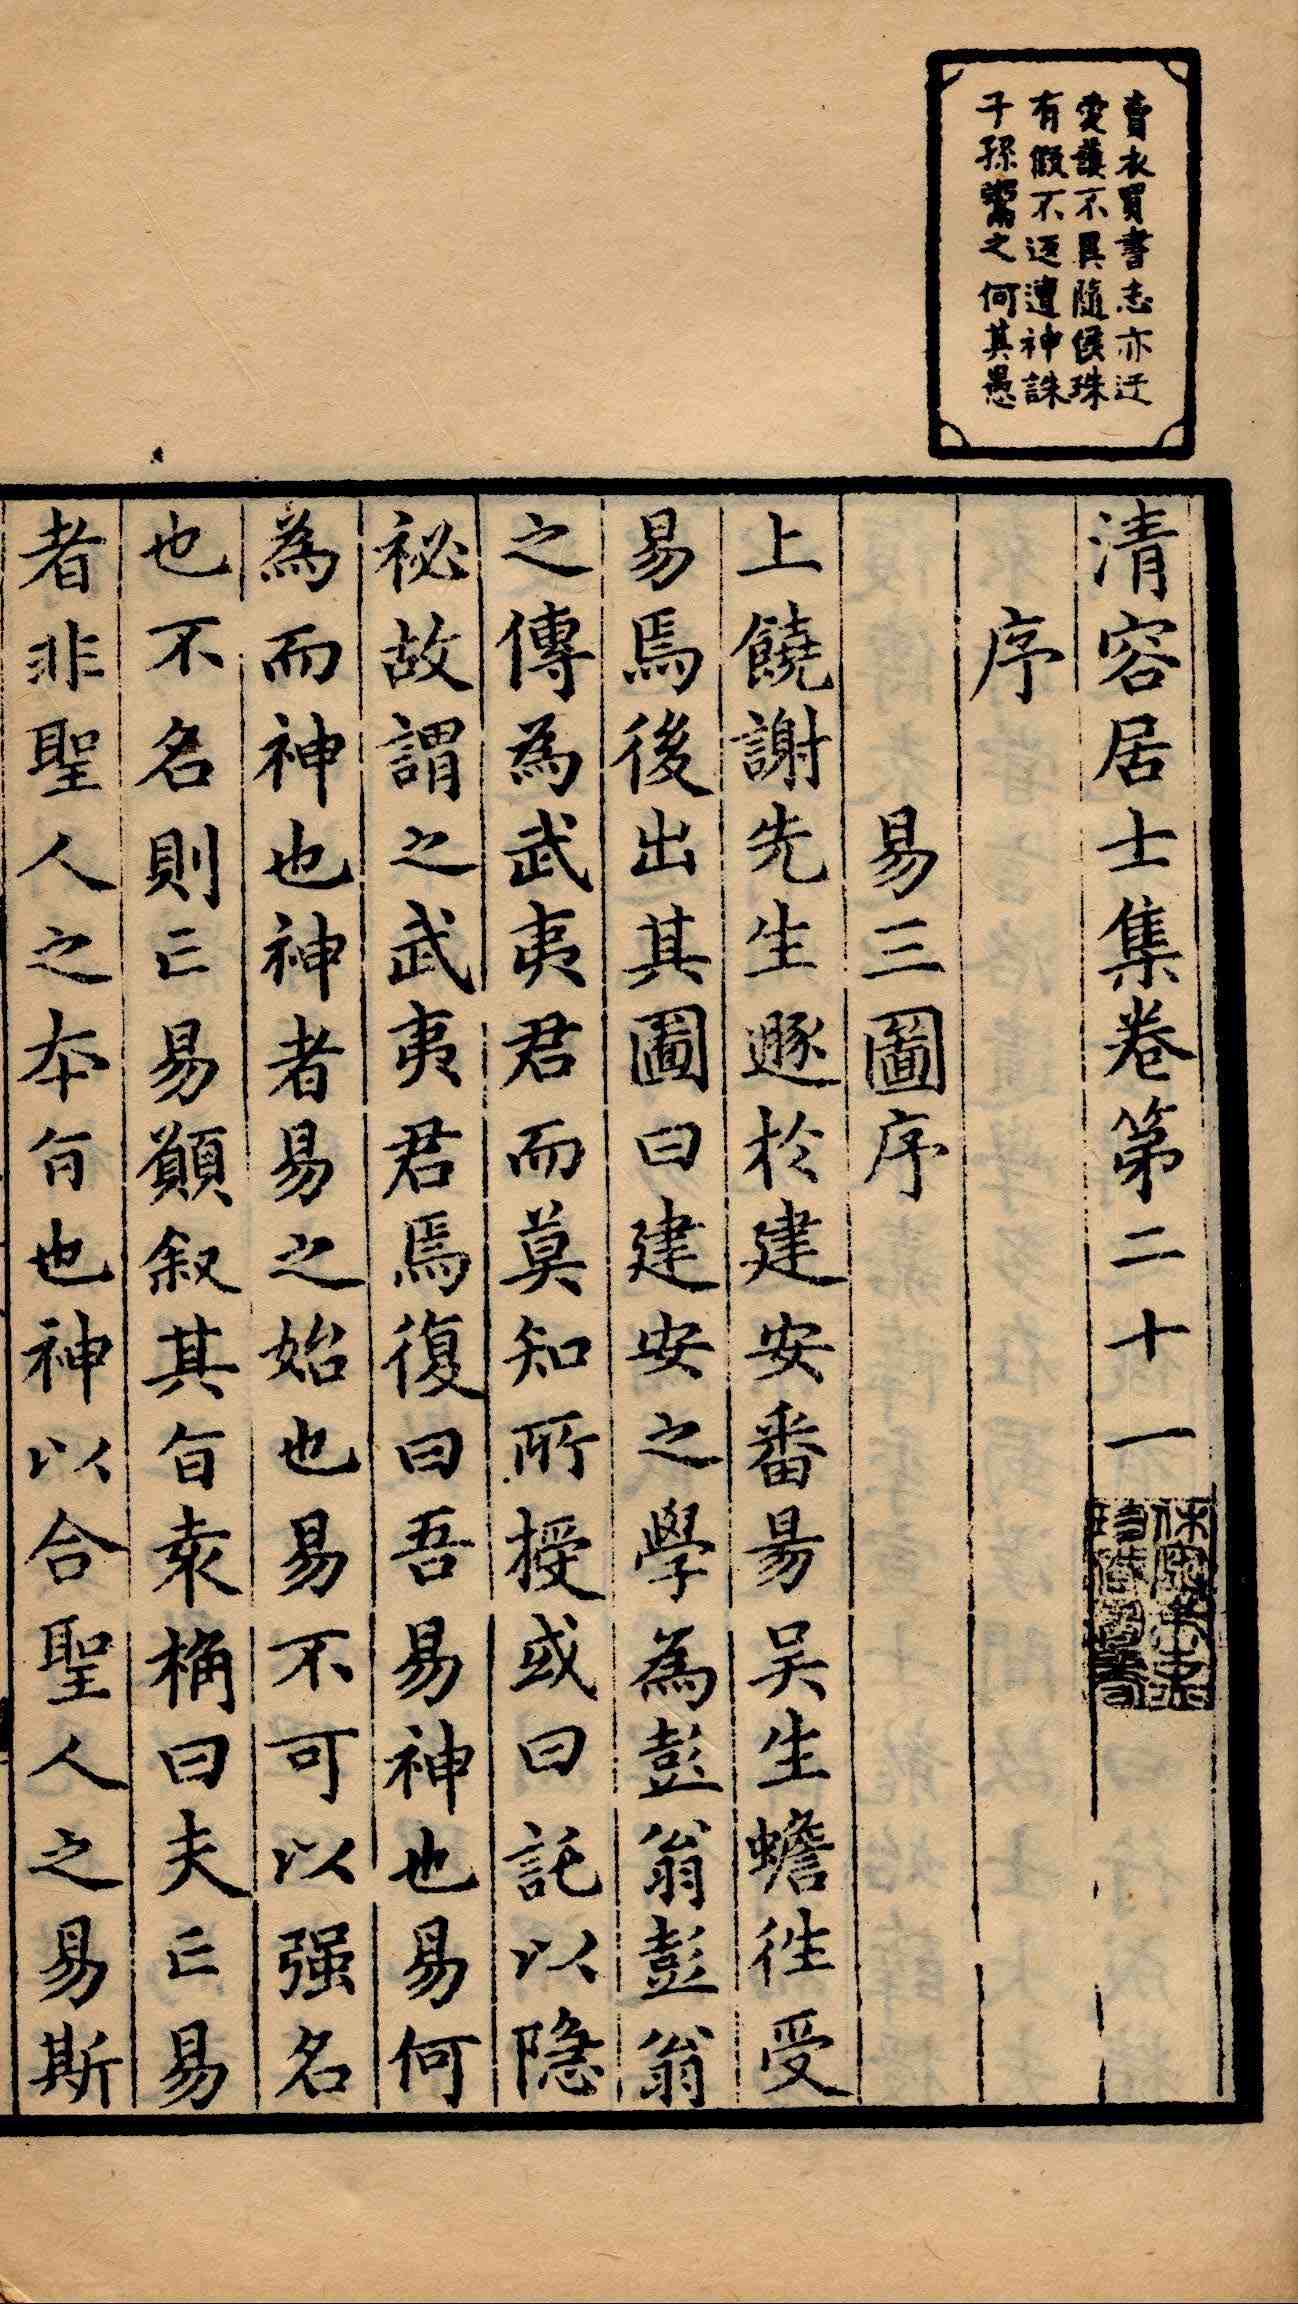 賣衣買書志亦迂
愛護不異隨侯珠
有假不返遭神誅
子孫鬻之何其愚
清容居士集卷第二十一
序
易三圖序
上饒謝先生遯於建安番昜吴生蟾徃受
易焉後出其圖曰建安之學為彭翁彭翁
之傳為武夷君而莫知所授或曰託以隠
祕故謂之武夷君焉復曰吾易神也易何
為而神也神者易之始也易不可以强名
也不名則亡易願叙其旨袁桷曰夫亡易
者非聖人之本旨也神以合聖人之易斯